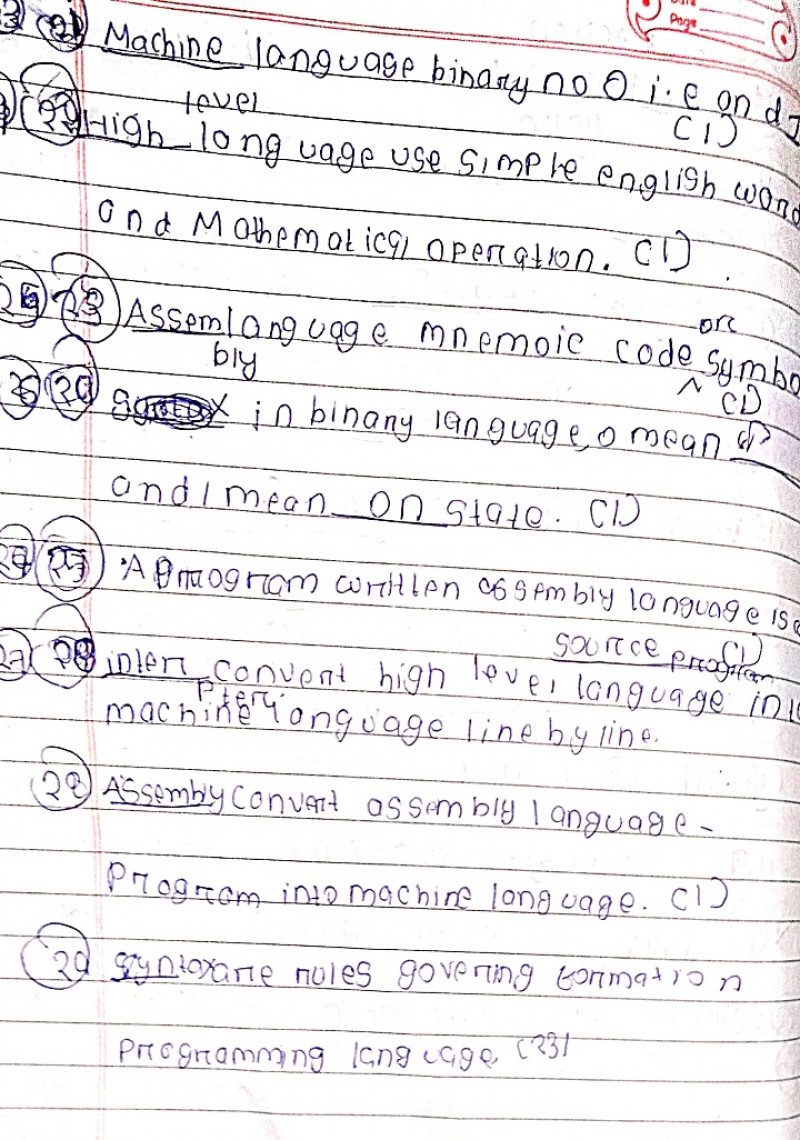 Page
(21) Machine language binary no 0 i.e and 1
(1)
(22) High level language use simple english word
and Mathematical operation. (1)
(23) Assembly language mnemoic code or symbo
(1)
in binary language, 0 mean
and 1 mean on state. (1)
A program written assembly language is a
source program (1)
interpter convert high level language into
machine language line by line.
(28) Assembly convert assembly language -
Program into machine language. (1)
(29) Syntax are rules governing formation
Programming language (23)